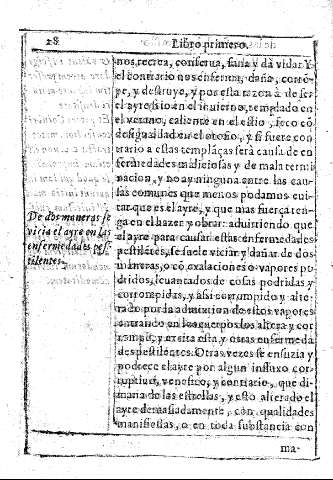 28
Libro primero.
nos, recrea, conserua, sana y dà vida: Y
el contrario nos enferma, daña, corrõ-
pe, y destruye, y por esta razon à de ser
el ayre frio en el inuierno, templado en
el verano, caliente en el estio, seco cõ
desigualdad en el otoño, y si fuere con
trario a estas templãças serà causa de en
fermedades maliciosas y de mala termi
nacion, y no ay ninguna entre las cau-
sas comunes que menos podamos eui-
tar que es el ayre, y que mas fuerça ten-
ga en el hazer y obrar: aduirtiendo que
el ayre para causar estas enfermedades
pestilẽtes, se suele viciar y dañar de dos
maneras, o cõ exalaciones o vapores po
dridos, leuantados de cosas podridas y
corrompidas, y assi corrompido y alte-
rado por la admixtion de estos vapores
entrando en los cuerpos los altera y cor
rompe, y excita esta, y otras enfermeda
des pestilentes. Otras vezes se ensuzia y
podrece el ayre por algun influxo cor-
ruptiuo, venefico, y contrario, que di-
mana de las estrellas, y esto alterado el
ayre demasiadamente, con qualidades
manifiestas, o en toda substancia con
ma-
De dos maneras se
vicia el ayre en las
enfermedades pes-
tilentes.